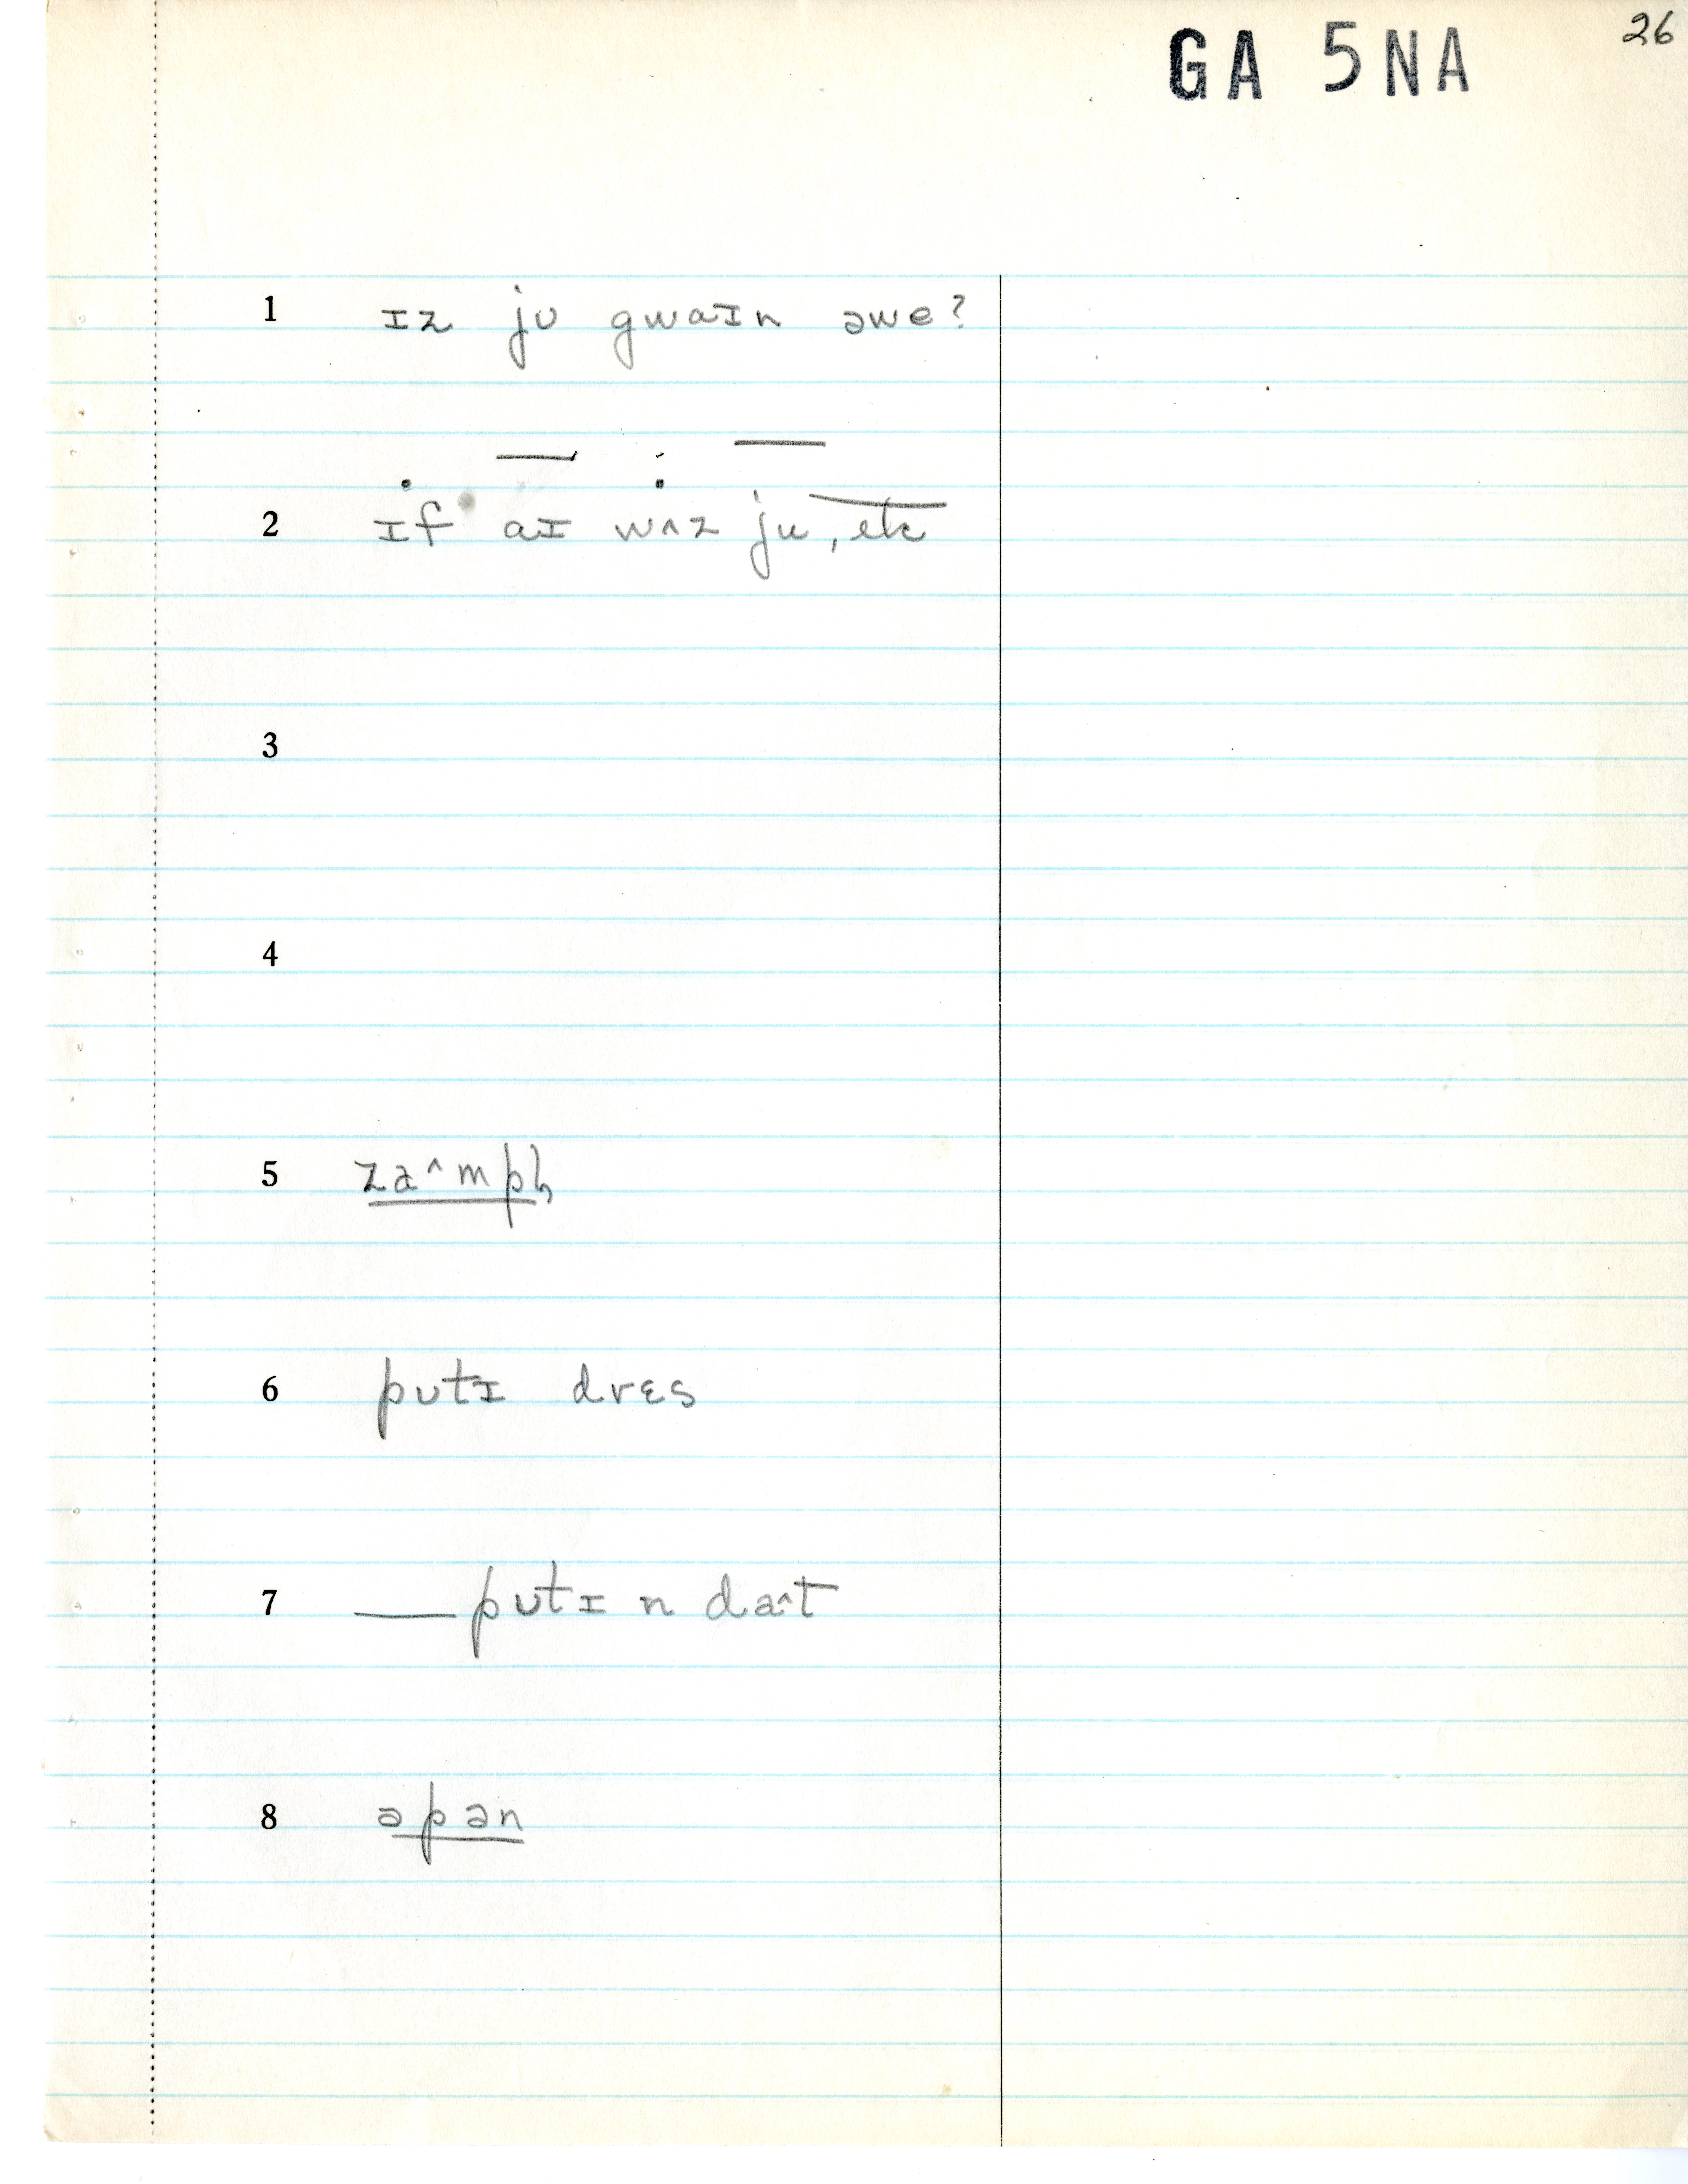 GA 5NA
26
1 ɪz jʊ gwaɪn əwe?
2 ɪf aɪ wʌz ju, etc
3
4
5
6 pʊtɪ drɛs
7 — pʊtɪ n daˆt
8 əpən